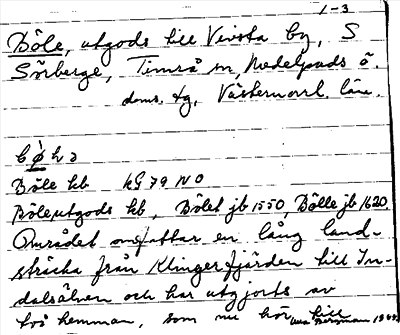 1-3
Böle, utgods till Vivsta by, S
Sörberge, Timrå sn, Medelpads ö.
doms. tg, Västernorrl. län.
Böle kb kG 79 NO
Böle, utgods kb, Bölet jb 1550, Bölle jb 1620.
Området omfattar en lång land-
sträcka från Klingerfjärden till In-
dalsälven och har utgjorts av
två hemman, som nu hör till